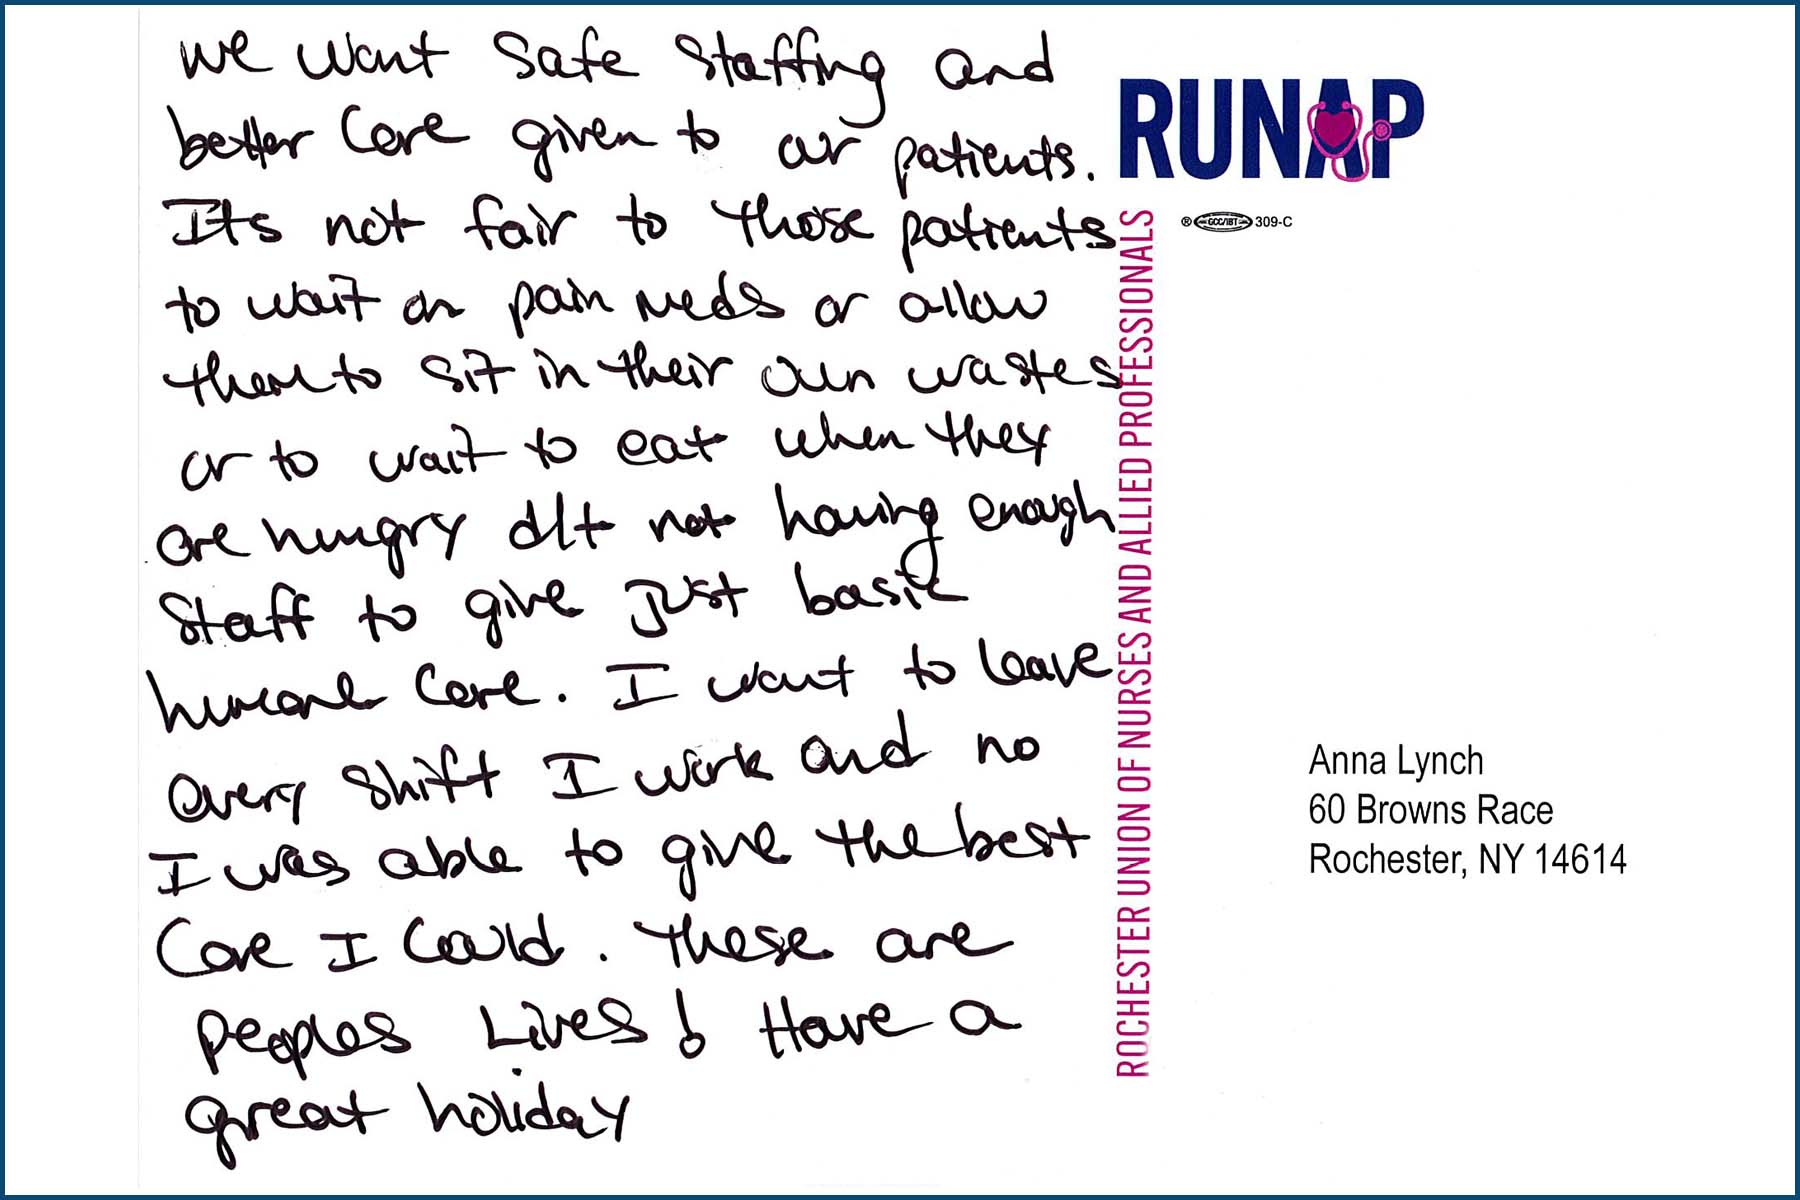 we want safe staffing and
better care given to our patients.
Its not fair to those patients
to wait on pain meds or allow
them to sit in their own wastes
or to wait to eat when they
are hungry d/t not having enough
staff to give just basic
humane care. I want to leave
every shift I work and no
I was able to give the best
care I could. These are
peoples Lives! Have a
great holiday
RUNAP
® GCC/IBT 309-C
ROCHESTER UNION OF NURSES AND ALLIED PROFESSIONALS
Anna Lynch
60 Browns Race
Rochester, NY 14614